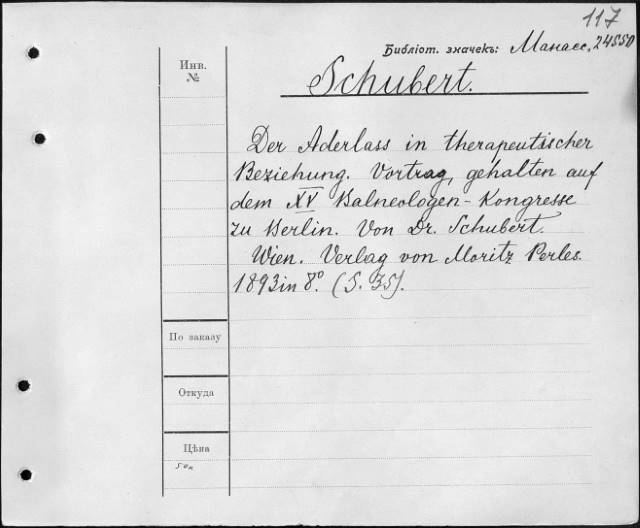 117
Библіот. значекъ: Манасс. 24550
Инв.
№
Schubert.
Der Aderlass in therapeutischer
Beziehung. Vortrag, gehalten auf
dem XV Balneologen-Kongresse
zu Berlin. Von Dr. Schubert.
Wien. Verlag von Moritz Perles.
1893 in 8º. (S. 35).
По заказу
Откуда
Цѣна